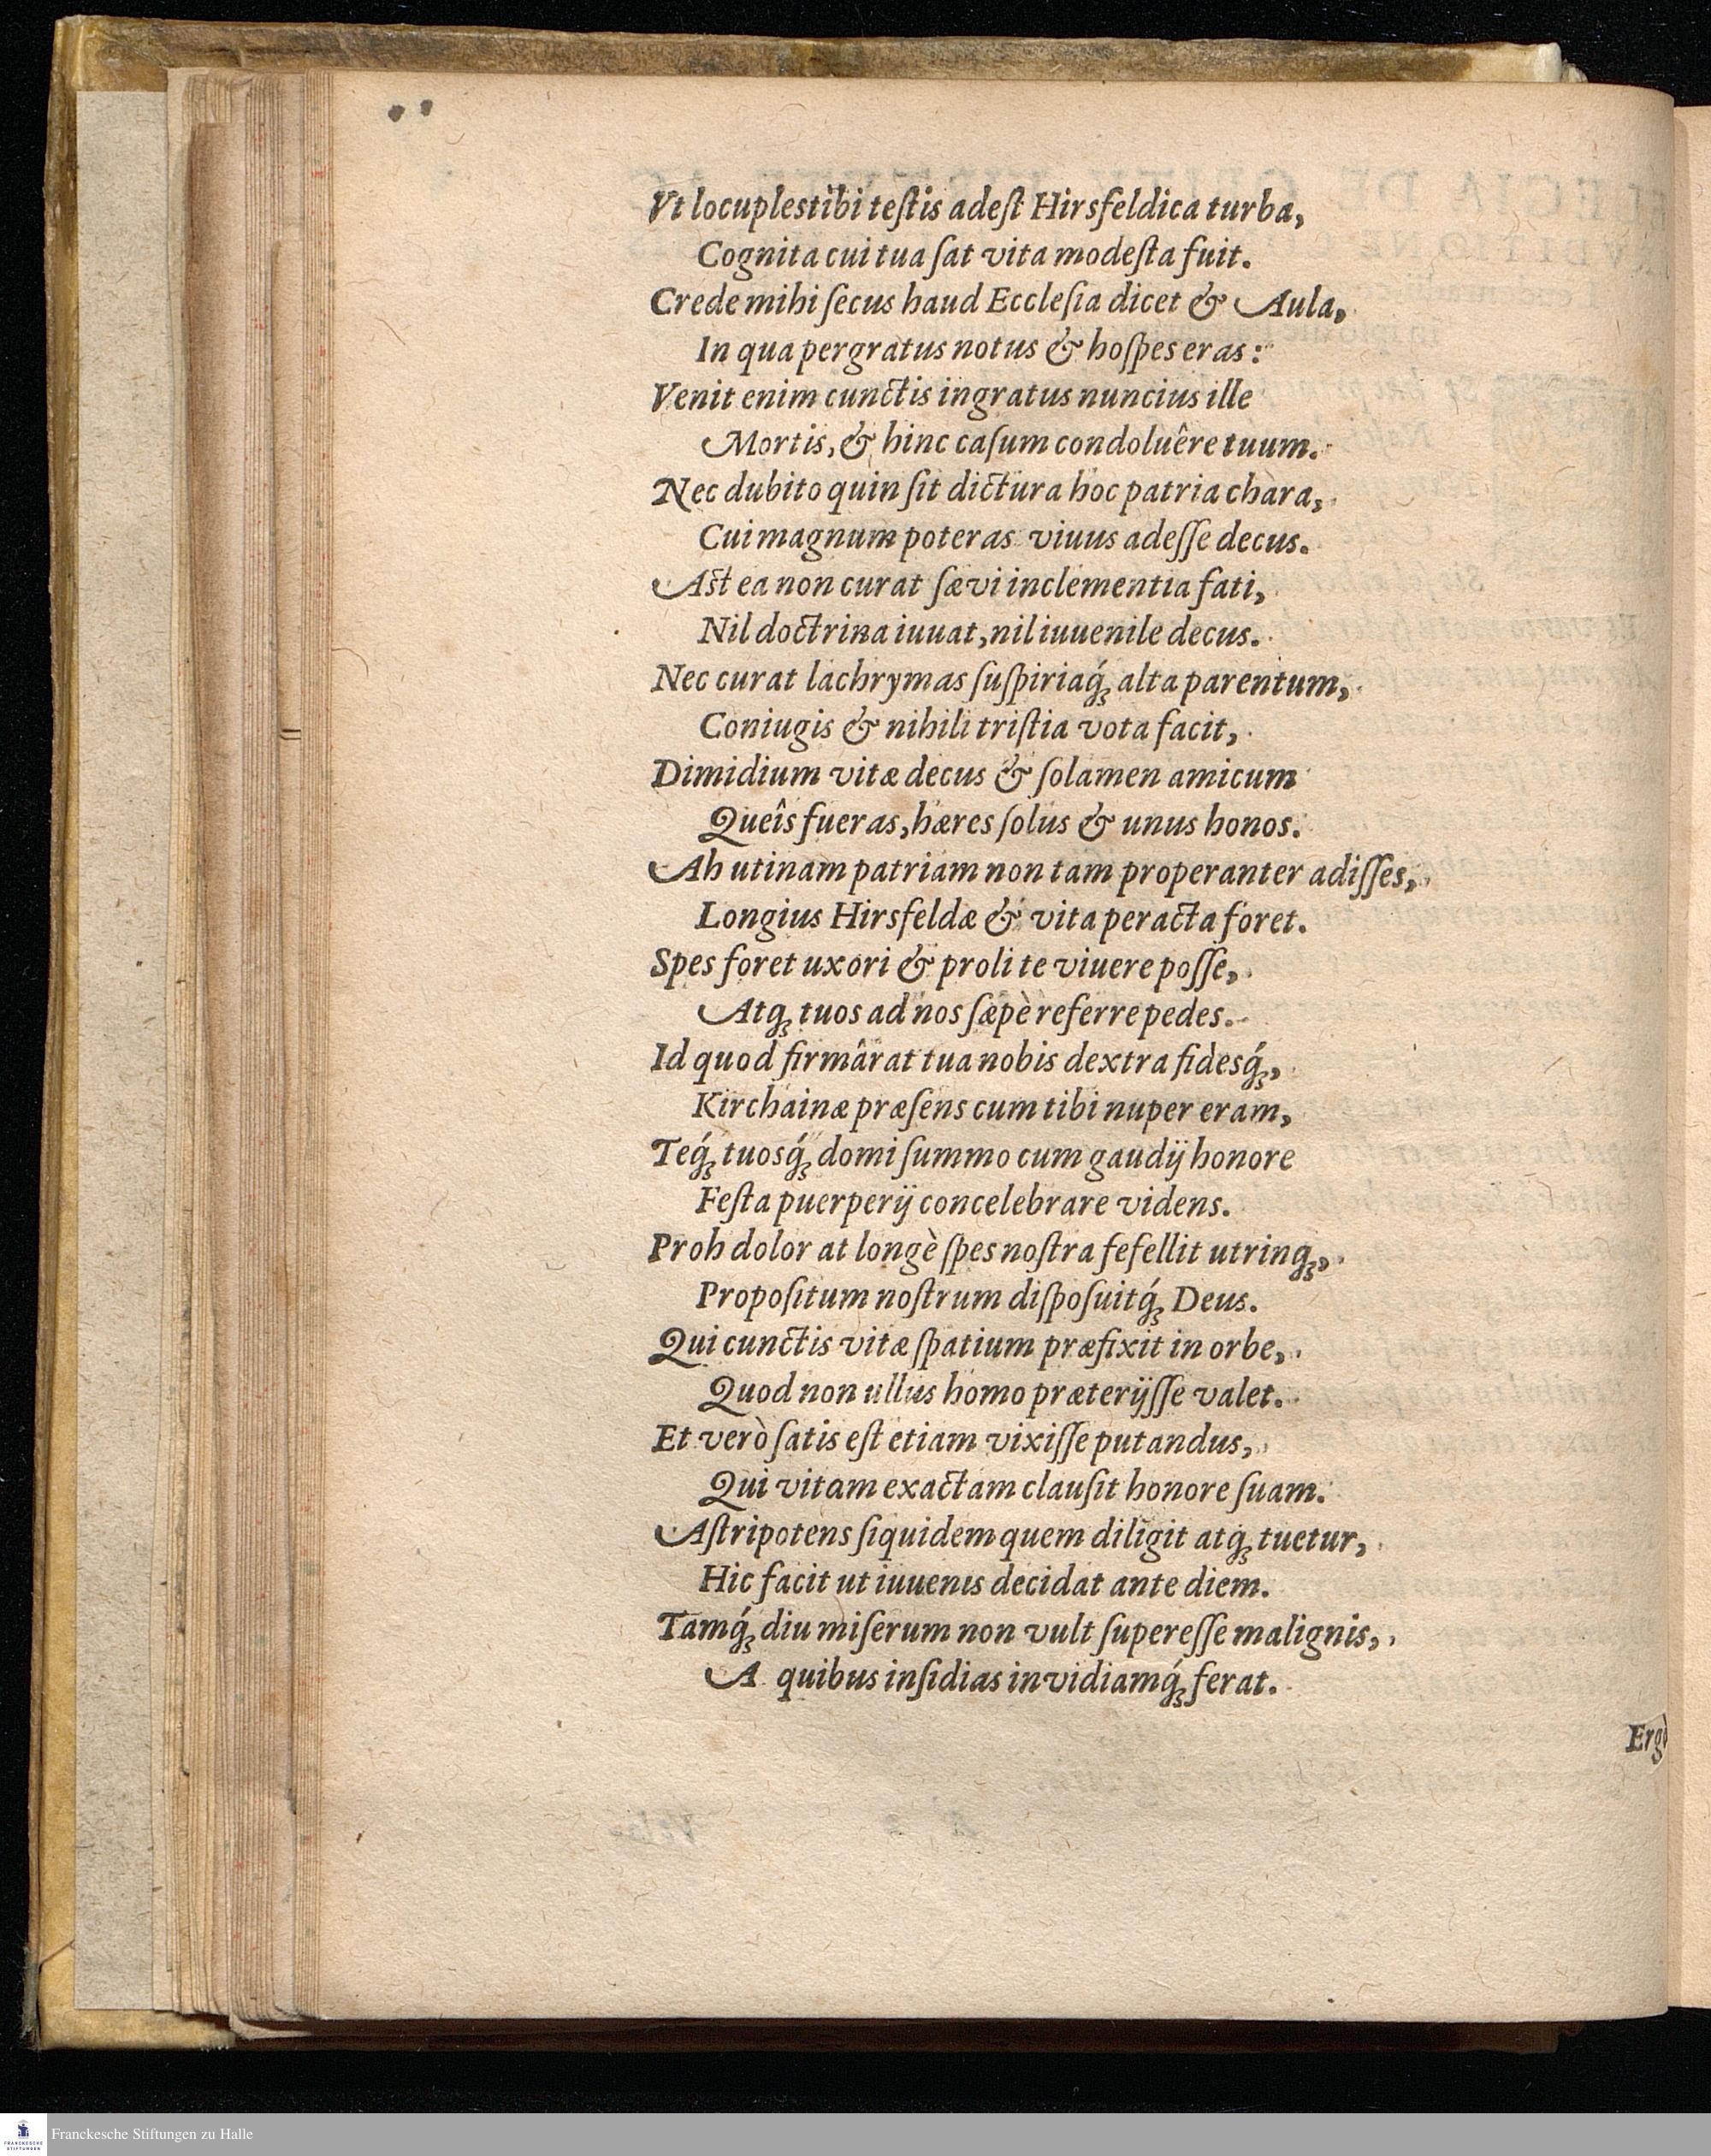 Vt locuples tibi teſtis adeſt Hirsfeldica turba,
Cognita cui tua ſat vita modeſta fuit.
Crede mihi ſecus haud Eccleſia dicet & Aula,
In qua pergratus notus & hoſpes eras:
Venit enim cunctis ingratus nuncius ille
Mortis, & hinc caſum condoluêre tuum.
Nec dubito quin ſit dictura hoc patria chara,
Cui magnum poteras viuus adeſſe decus.
Aſt ea non curat ſævi inclementia fati,
Nil doctrina iuuat, nil iuuenile decus.
Nec curat lachrymas ſuſpiriaq́ꝫ alta parentum,
Coniugis & nihili triſtia vota facit,
Dimidium vitæ decus & ſolamen amicum
Queîs fueras, hæres ſolus & unus honos.
Ah utinam patriam non tam properanter adiſſes,
Longius Hirsfeldæ & vita peracta foret.
Spes foret uxori & proli te viuere poſſe,
Atqꝫ tuos ad nos ſæpè referre pedes.
Id quod firmârat tua nobis dextra fidesq́ꝫ,
Kirchainæ præſens cum tibi nuper eram,
Teq́ꝫ tuosq́ꝫ domi ſummo cum gaudij honore
Feſta puerperij concelebrare videns.
Proh dolor at longè ſpes noſtra fefellit utrinqꝫ,
Propoſitum noſtrum diſpoſuitq́ꝫ Deus.
Qui cunctis vitæ ſpatium præfixit in orbe,
Quod non ullus homo præterijſſe valet.
Et verò ſatis eſt etiam vixiſſe putandus,
Qui vitam exactam clauſit honore ſuam.
Aſtripotens ſiquidem quem diligit atqꝫ tuetur,
Hic facit ut iuuenis decidat ante diem.
Tamq́ꝫ diu miſerum non vult ſupereſſe malignis,
A quibus inſidias invidiamq́ꝫ ferat.
Ergò
Franckesche Stiftungen zu Halle